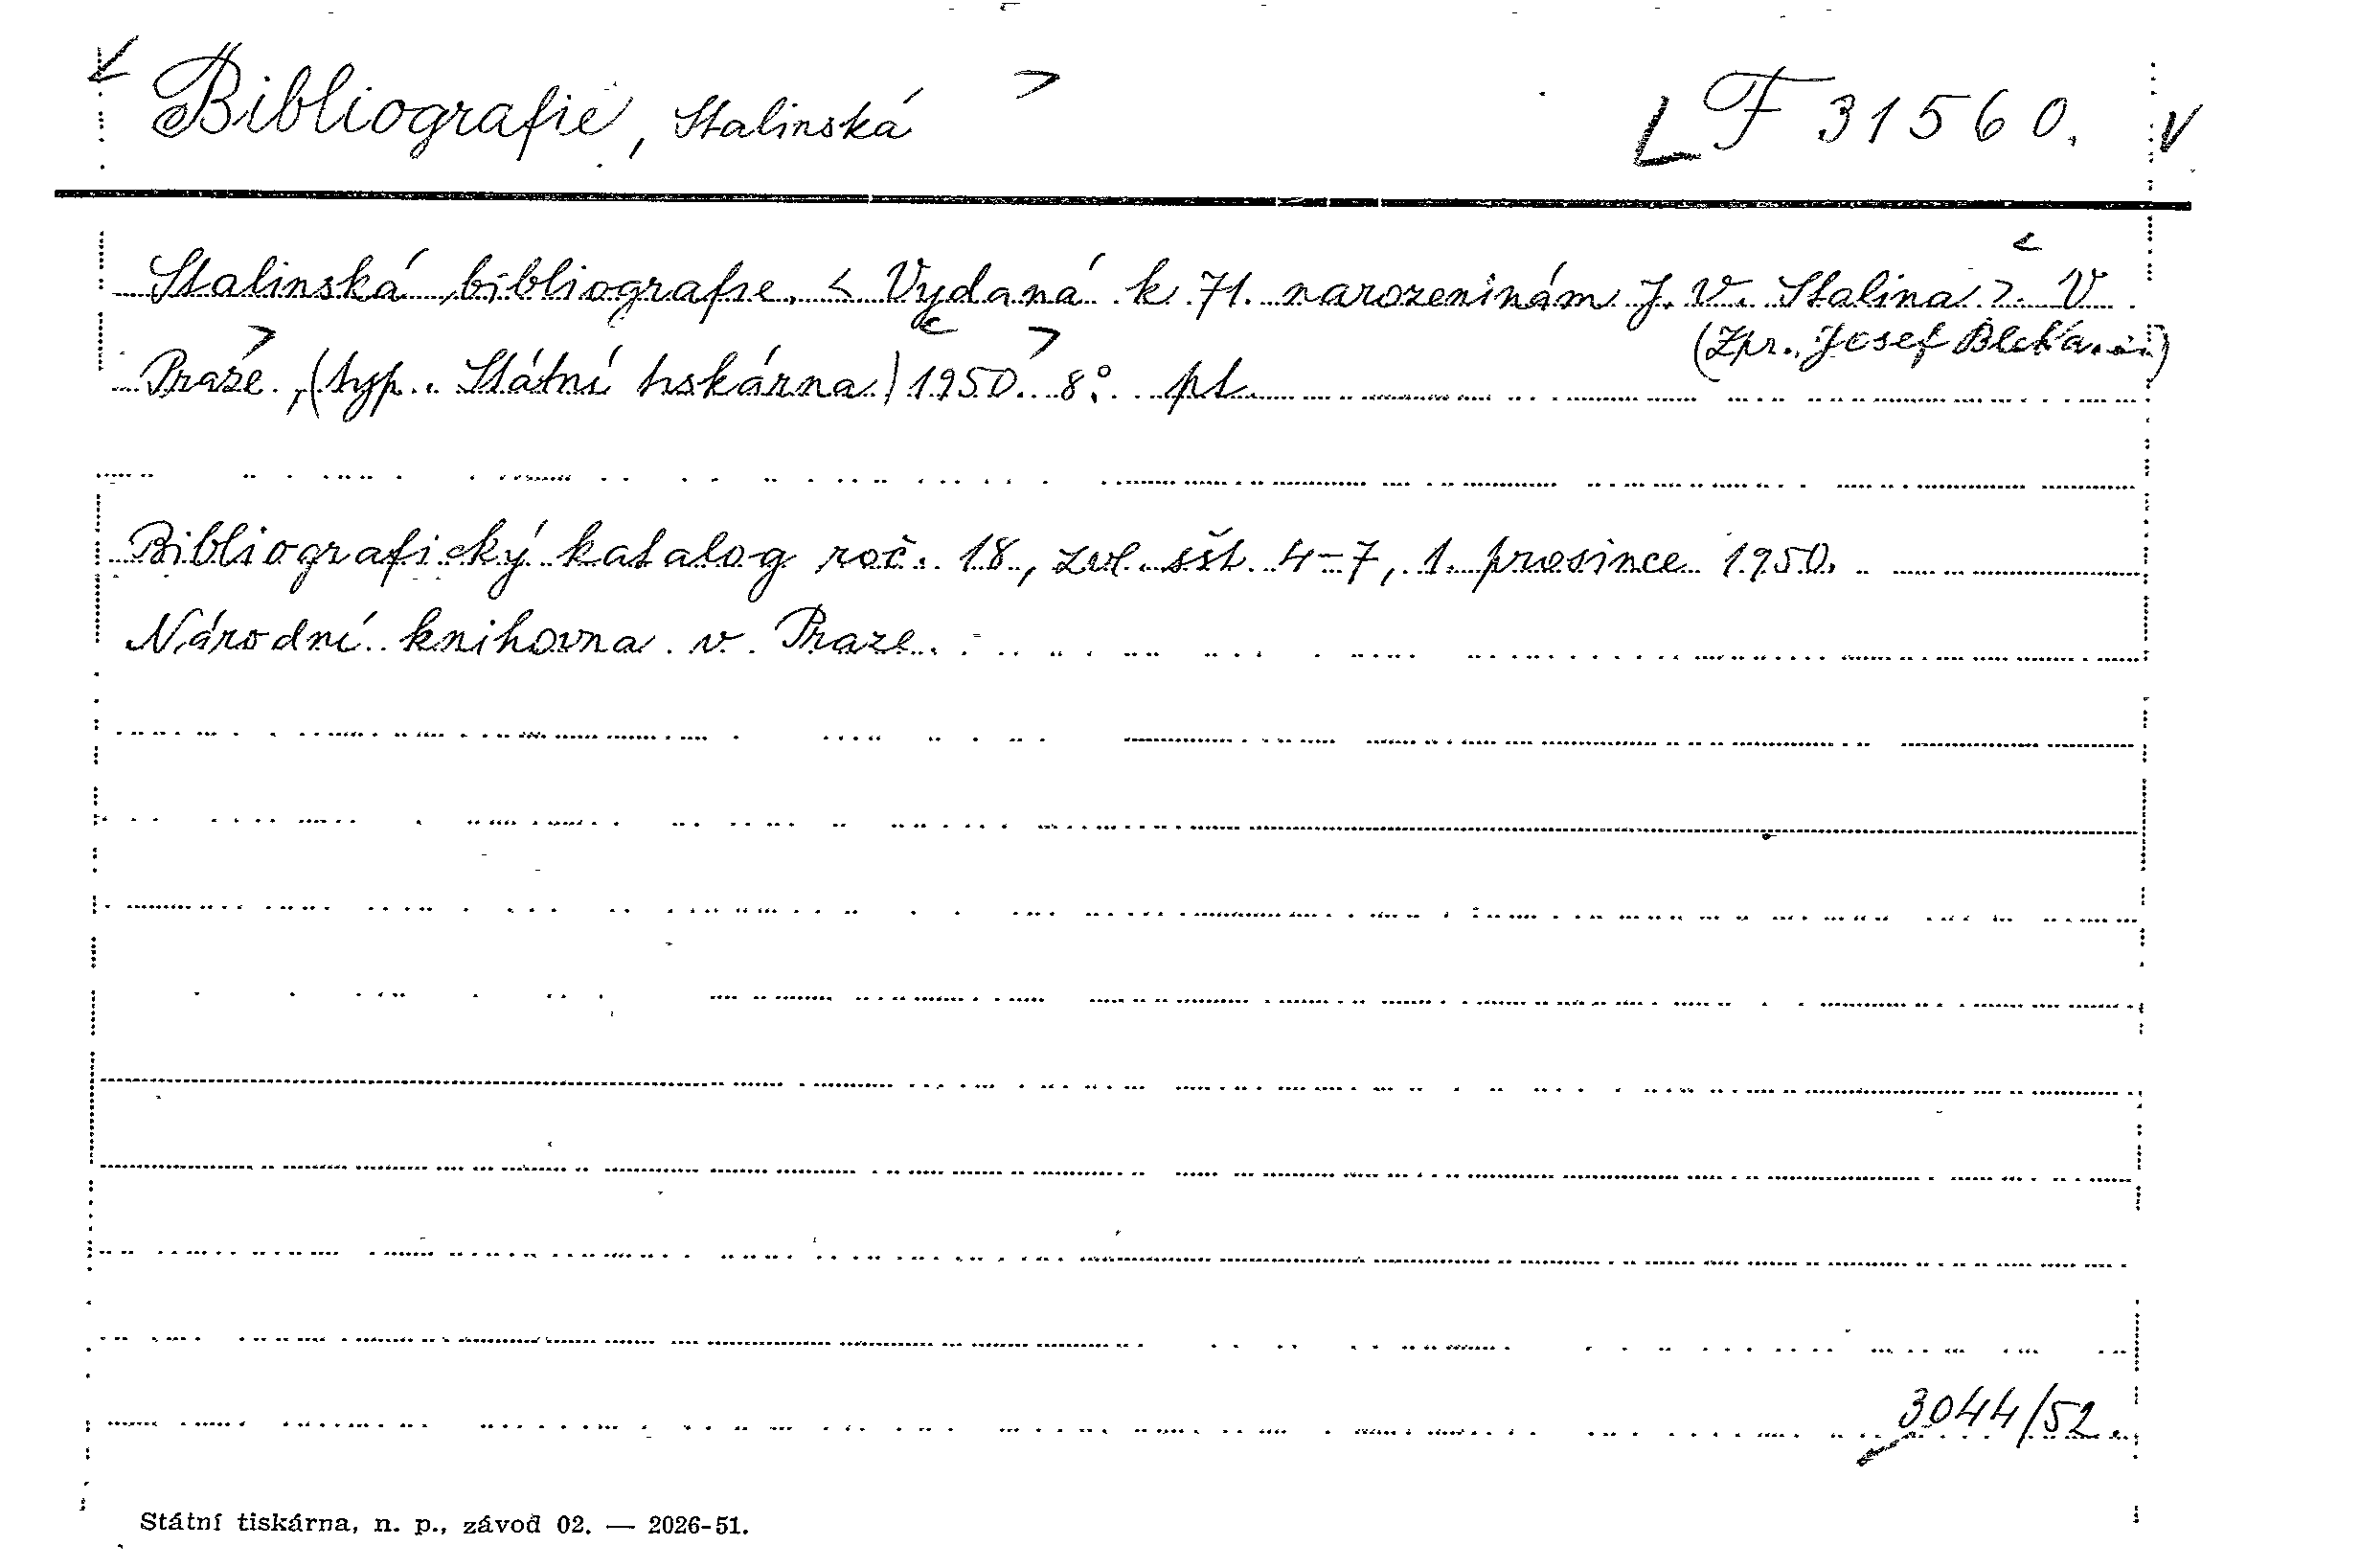 Bibliografie, Stalinská F 31560.
Stalinská bibliografie. < Vydaná k 71. narozeninám J. V. Stalina >. V
(Zpr. Josef
Praze, (typ. Státní tiskárna) 1950. 8°. pt.
Bibliografický katalog roč. 18, zvl. sšt. 4-7, 1. prosince 1950.
Národní knihovna v Praze.
3044/52.
Státní tiskárna, n. p., závod 02. — 2026-51.